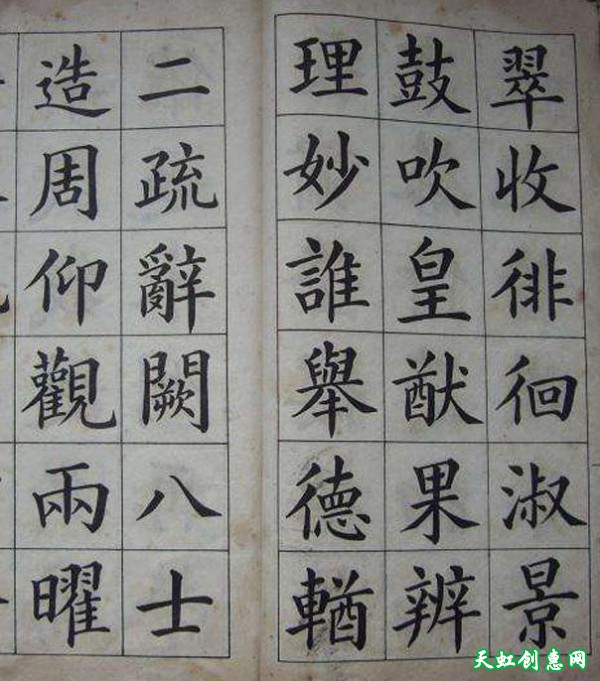 翠收徘徊淑景
鼓吹皇猷果辨
理妙誰舉德輶
二疏辭闕八士
造周仰觀兩曜
天虹创惠网